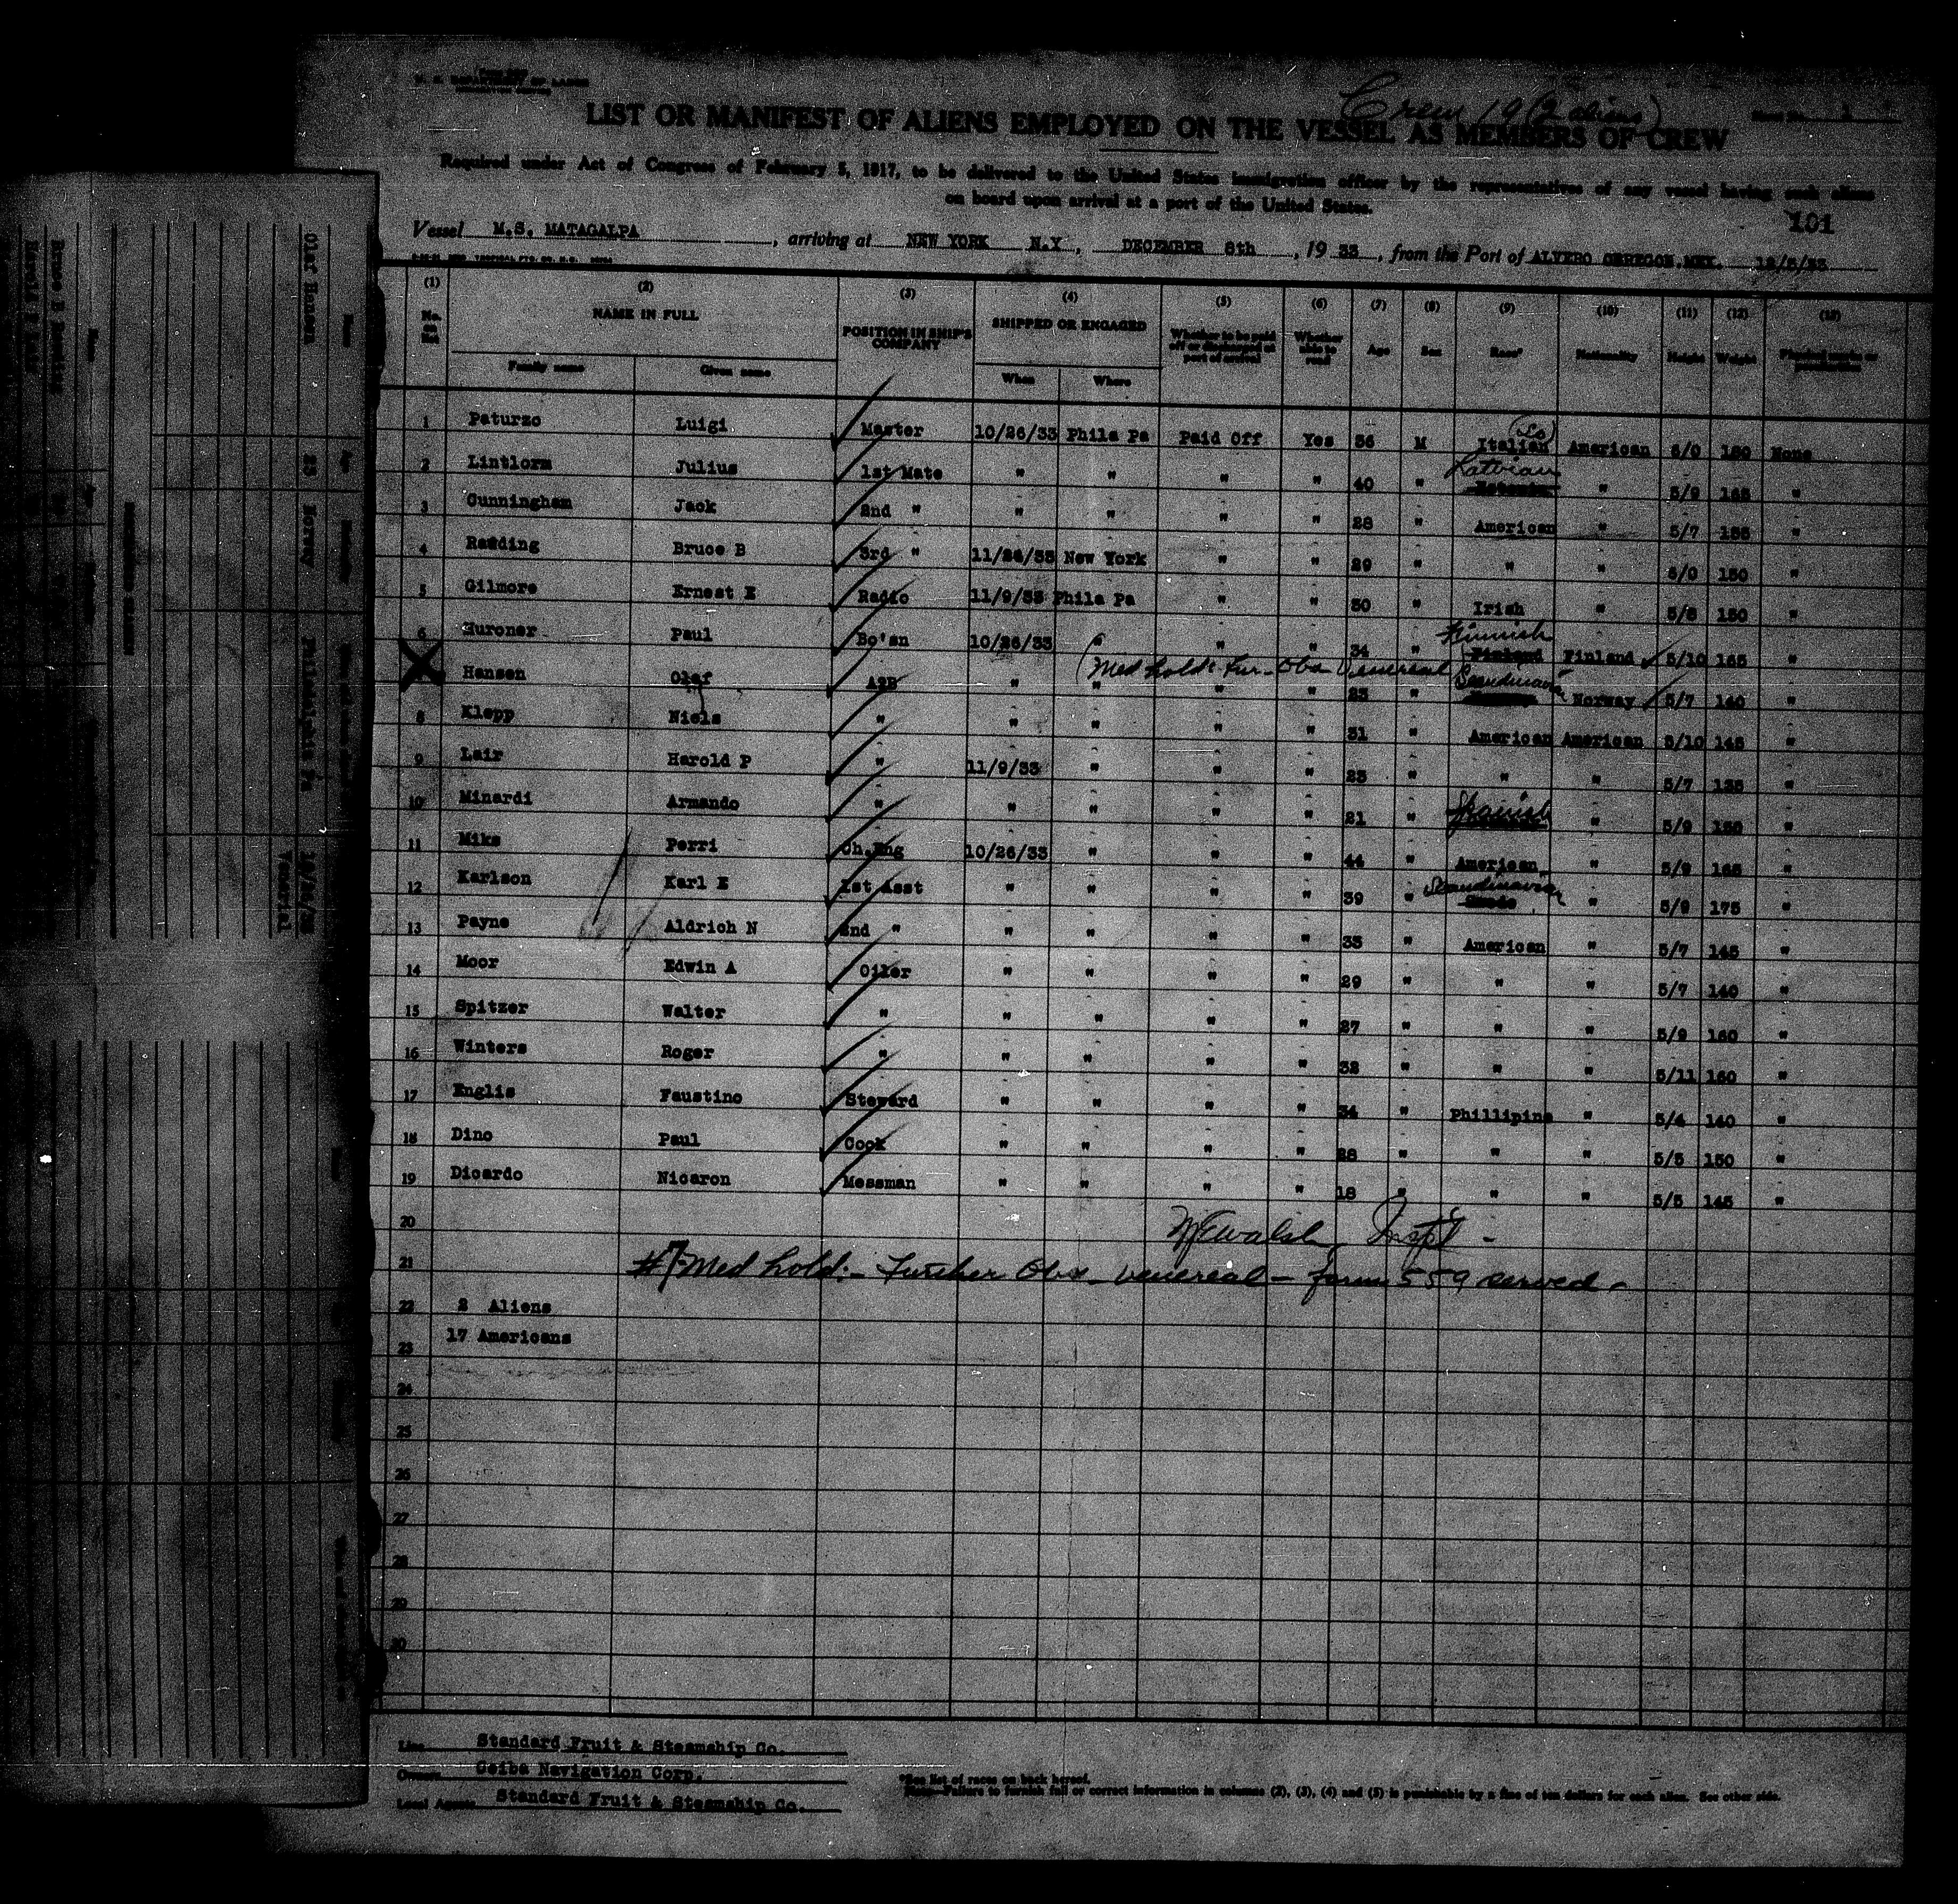 U. S. DEPARTMENT OF LABOR
Crew 19 (2 aliens)
LIST OR MANIFEST OF ALIENS EMPLOYED ON THE VESSEL AS MEMBERS OF CREW
Required under Act of Congress of February 5, 1917, to be delivered to the United States immigration officer by the representatives of any vessel having such aliens
on board upon arrival at a port of the United States.
101
Vessel M.S. MATAGALPA, arriving at NEW YORK N.Y, DECEMBER 8th, 19 33, from the Port of ALVERO OBREGON, MEX.
(1) (2) (3) (4) (5) (6) (7) (8) (9) (10) (11) (12) (13)
No. on list NAME IN FULL POSITION IN SHIP'S COMPANY SHIPPED OR ENGAGED Whether to be paid off or discharged at port of arrival Whether able to read Age Sex Race* Nationality Height Weight Physical marks or peculiarities
Family name Given name When Where
1 Paturzo Luigi Master 10/26/33 Phila Pa Paid Off Yes 36 M Italian (So) American 6/0 180 None
2 Lintlorm Julius 1st Mate " " " " 40 " Latvian " 5/9 165 "
3 Cunningham Jack 2nd " " " " " 28 " American " 5/7 155 "
4 Redding Bruce B 3rd " 11/26/33 New York " " 29 " " " 6/0 150 "
5 Gilmore Ernest E Radio 11/9/33 Phila Pa " " 30 " Irish " 5/8 150 "
6 Huroner Paul Bo'sn 10/26/33 " " " 34 " Finland Finnish Finland 5/10 165 "
(Med hold: Fur- Obs Venereal
X Hansen Olaf ASB " " " " 23 " Scandinavian Norway 5/7 140 "
8 Klepp Niels " " " " " 31 " American American 5/10 145 "
9 Lair Harold P " 11/9/33 " " " 23 " " " 5/7 135 "
10 Minardi Armando " " " " " 21 " Spanish " 5/9 150 "
11 Mike Perri Ch.Eng 10/26/33 " " " 44 " American " 5/9 165 "
12 Karlson Karl E 1st Asst " " " " 39 " Scandinavian " 5/9 175 "
13 Payne Aldrich N 2nd " " " " " 35 " American " 5/7 145 "
14 Moor Edwin A Oiler " " " " 29 " " " 5/7 140 "
15 Spitzer Walter " " " " " 27 " " " 5/9 160 "
16 Winters Roger " " " " " 32 " " " 5/11 160 "
17 Englis Faustino Steward " " " " 34 " Phillipine " 5/4 140 "
18 Dino Paul Cook " " " " 28 " " " 5/5 150 "
19 Dicardo Nicaron Messman " " " " 18 " " " 5/5 145 "
20
21 #7 Med hold:- Further Obs - Venereal - form 559 served -
22 2 Aliens
17 Americans
23
24
25
26
27
28
29
30
Line Standard Fruit & Steamship Co.
Owners Ceiba Navigation Corp.
Local Agents Standard Fruit & Steamship Co.
*See list of races on back hereof.
Note—Failure to furnish full or correct information in columns (2), (3), (4) and (5) is punishable by a fine of ten dollars for each alien. See other side.
Olaf Hansen 23 Norway Philadelphia Pa Venereal